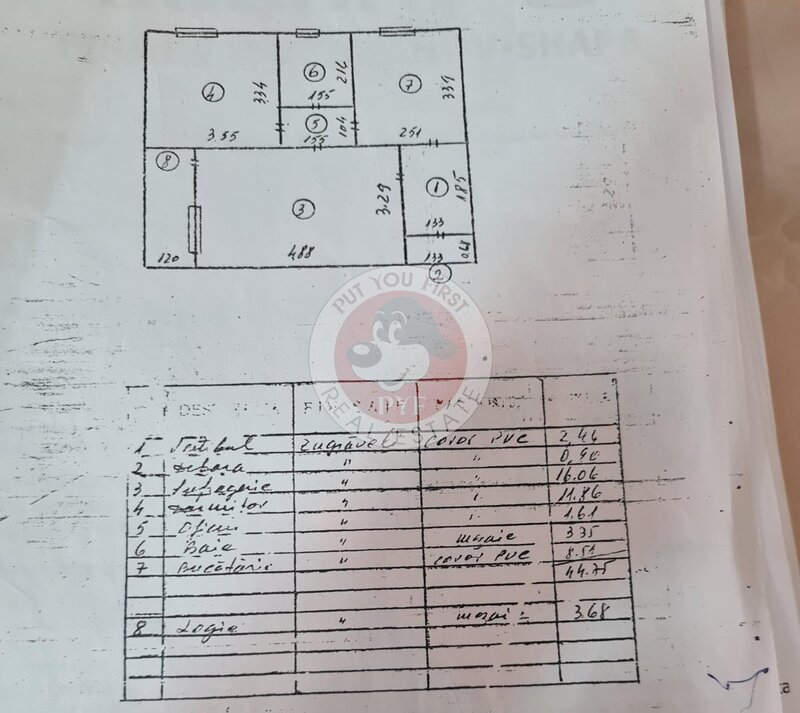 4
334
3.55
6
212
155
5
104
155
7
339
251
8
120
3
3.29
488
1
185
133
133
0.68
2
PUT YOU FIRST
PYF
REAL ESTATE
1 Vestibul Zugraveli covor PVC 2,46
2 Debara " " 0,90
3 Sufragerie " " 16.06
4 Dormitor " " 11.86
5 Oficiu " " 1.61
6 Baie " mozaic 3.35
7 Bucătărie " covor PVC 8.51
44.75
8 Logie " mozaic 3.68